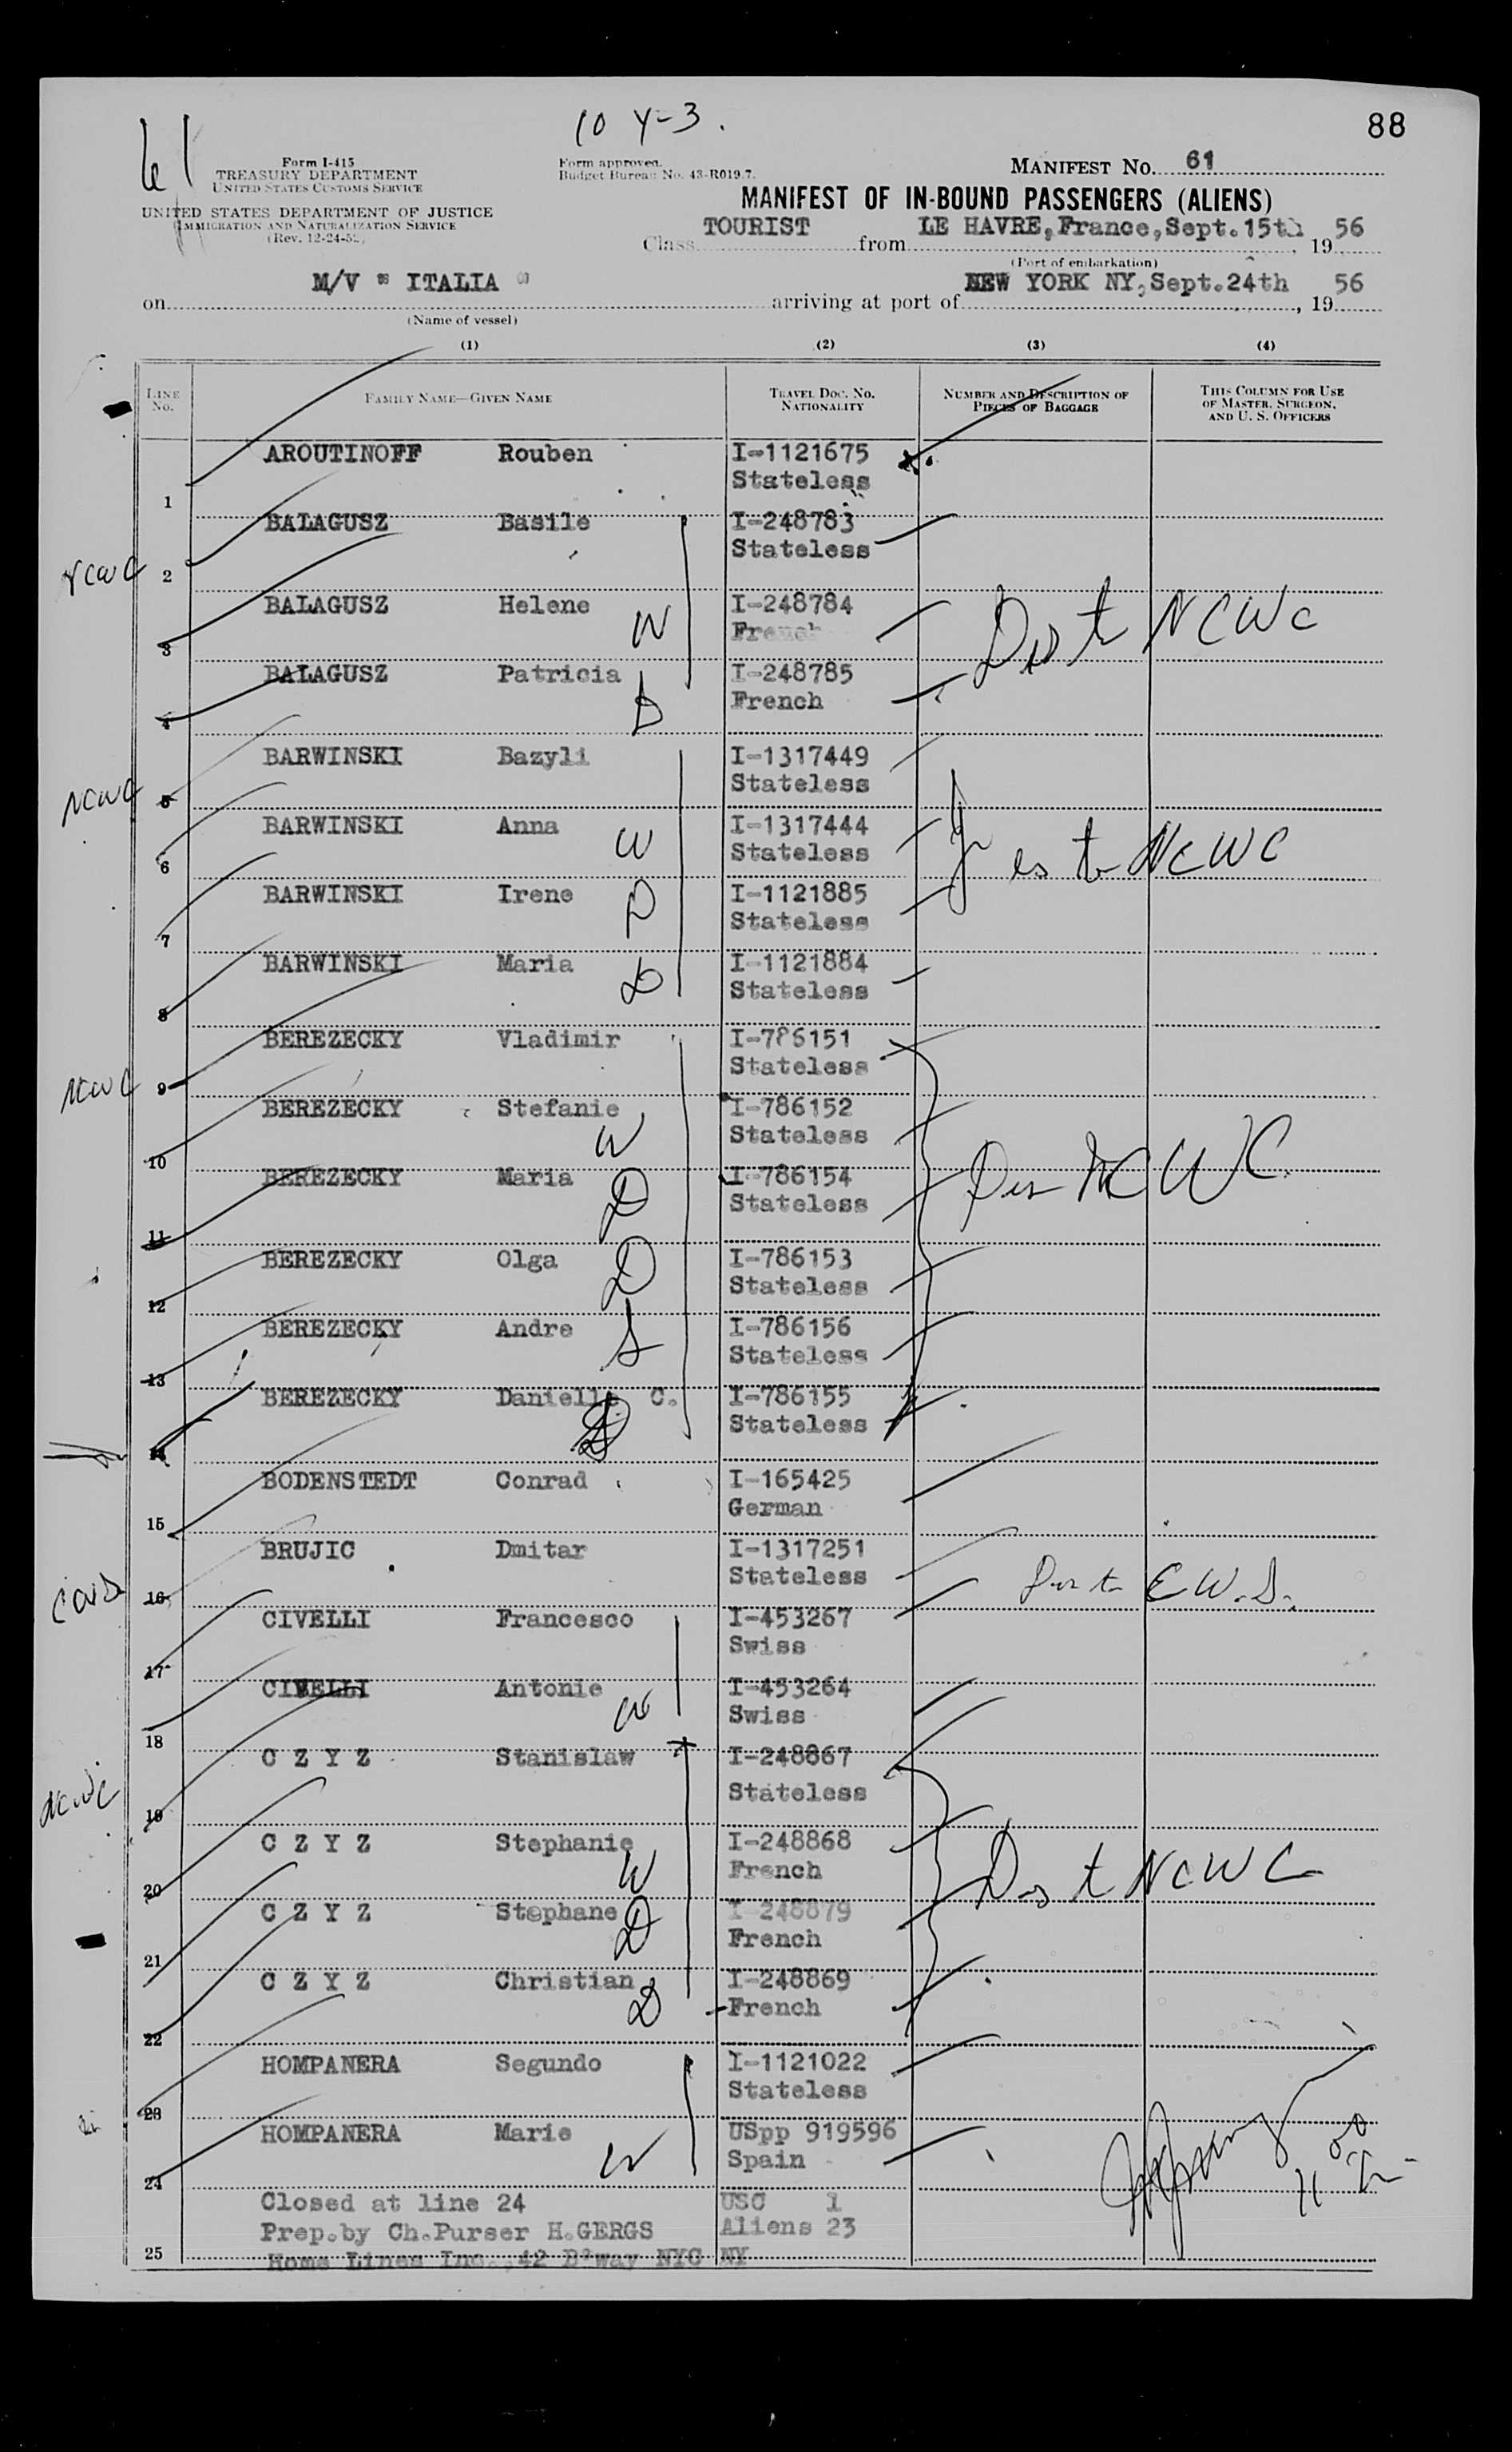 10 Y-3.
88
61
Form I-415
TREASURY DEPARTMENT
UNITED STATES CUSTOMS SERVICE
UNITED STATES DEPARTMENT OF JUSTICE
IMMIGRATION AND NATURALIZATION SERVICE
(Rev. 12-24-52)
Form approved.
Budget Bureau No. 43-R019.7.
MANIFEST No. 61
MANIFEST OF IN-BOUND PASSENGERS (ALIENS)
Class TOURIST from LE HAVRE, France, Sept. 15th, 19 56
(Port of embarkation)
on M/V " ITALIA " arriving at port of NEW YORK NY, Sept. 24th, 19 56
(Name of vessel)
(1) (2) (3) (4)
LINE No. FAMILY NAME—GIVEN NAME TRAVEL DOC. NO. NATIONALITY NUMBER AND DESCRIPTION OF PIECES OF BAGGAGE THIS COLUMN FOR USE OF MASTER, SURGEON, AND U. S. OFFICERS
1 AROUTINOFF Rouben I-1121675
Stateless
NCWC 2 BALAGUSZ Basile I-248783
Stateless
3 BALAGUSZ Helene W I-248784
French NCWC
4 BALAGUSZ Patricia D I-248785
French
NCWC 5 BARWINSKI Bazyli I-1317449
Stateless
6 BARWINSKI Anna W I-1317444
Stateless NCWC
7 BARWINSKI Irene D I-1121885
Stateless
8 BARWINSKI Maria D I-1121884
Stateless
NCWC 9 BEREZECKY Vladimir I-786151
Stateless
10 BEREZECKY Stefanie W I-786152
Stateless
11 BEREZECKY Maria D I-786154
Stateless NCWC
12 BEREZECKY Olga D I-786153
Stateless
13 BEREZECKY Andre S I-786156
Stateless
14 BEREZECKY Danielle C. D I-786155
Stateless
15 BODENSTEDT Conrad I-165425
German
CWS 16 BRUJIC Dmitar I-1317251
Stateless C W.S.
17 CIVELLI Francesco I-453267
Swiss
18 CIVELLI Antonie W I-453264
Swiss
NCWC 19 C Z Y Z Stanislaw I-248867
Stateless
20 C Z Y Z Stephanie W I-248868
French NCWC
21 C Z Y Z Stephane D I-248879
French
22 C Z Y Z Christian D I-248869
French
23 HOMPANERA Segundo I-1121022
Stateless
24 HOMPANERA Marie W USpp 919596
Spain
Closed at line 24 USC 1
Prep. by Ch. Purser H. GERGS Aliens 23
25 Home Lines Inc., 42 B'way NYC NY